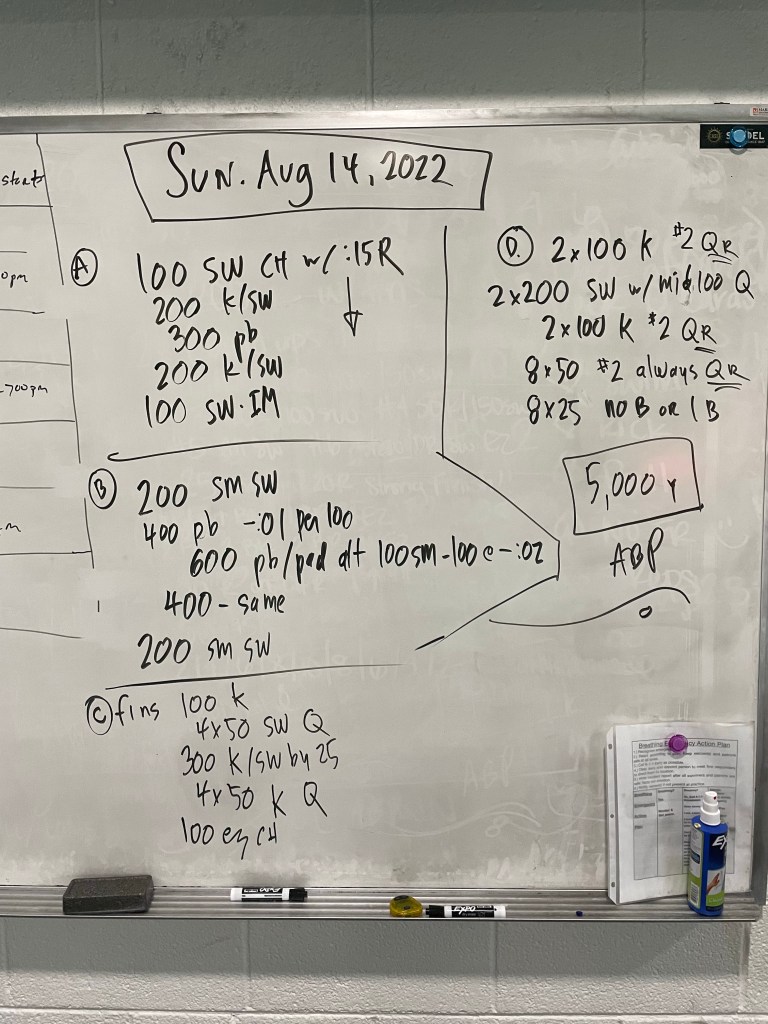 Sun. Aug 14, 2022
A 100 SW CH w/ :15R
200 k/sw
300 pb
200 k/sw
100 SW. IM
B 200 sm sw
400 pb -:01 per 100
600 pb/pad alt 100sm-100@-:02
400 - same
200 sm sw
C fins 100 K
4x50 SW Q
300 K/SW by 25
4x50 K Q
100 ez CH
D. 2x100 K #2 QR
2x200 SW w/ mid 100 Q
2x100 K #2 QR
8x50 #2 always QR
8x25 no B or 1 B
5,000 Y
ABP
starts
0pm
700pm
m
Breathing Action Plan
EXPO